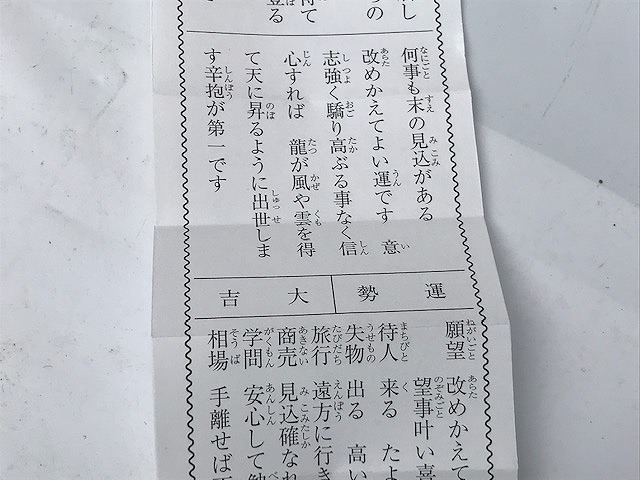 し
の
得て
る
何事も末の見込がある
改めかえてよい運です 意
志強く驕り高ぶる事なく信
心すれば 龍が風や雲を得
て天に昇るように出世しま
す辛抱が第一です
運勢 大吉
願望 改めかえて
望事叶い喜
待人 来る たよ
失物 出る 高い
旅行 遠方に行き
商売 見込確なれ
学問 安心して勉
相場 手離せば